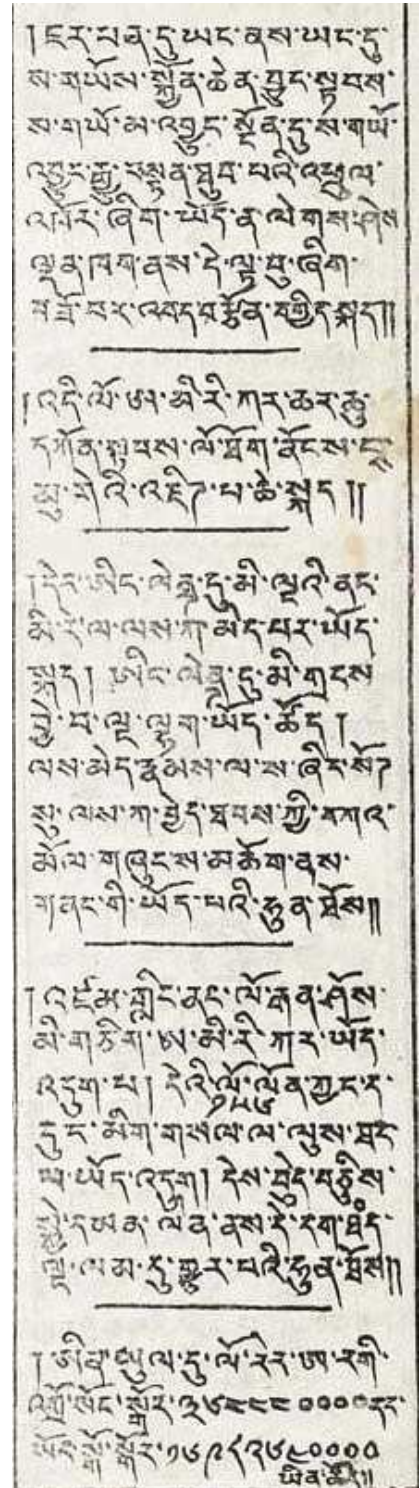 །ཇར་པན་དུ་ཡང་ནས་ཡང་དུ་
ས་གཡོས་སྐྱོན་ཆེན་བྱུང་སྟབས་
ས་གཡོ་མ་འབྱུང་སྔོན་དུ་ས་གཡོ་
འབྱུང་རྒྱུ་བསྟན་ཐུབ་པའི་འཕྲུལ་
འཁོར་ཞིག་ཡོད་ན་ལེགས་ཤེས་
ལྡན་ཁག་ནས་དེ་ལྟ་བུ་ཞིག་
བཟོ་བར་འབད་བརྩོན་བགྱིད་སྐད།།
།འདི་ལོ་ཨ་མི་རི་ཀར་ཆར་ཆུ་
དཀོན་སྟབས་ལོ་ཐོག་ནོངས་བླ་
མུ་གེའི་འཇིཊ་པ་ཆེ་སྐད།།
།དེར་ཨིང་ལེནྜ་དུ་མི་ལྔའི་ནང་
མི་རེ་ལ་ལས་ཀ་མེད་པར་ཡོད་
སྐད། ཨིང་ལེནྜ་དུ་མི་གྲངས་
བྱེ་བ་ལྔ་ལྷག་ཡོད་ཚོད།
ལས་མེད་རྣམས་ལ་ས་ཞིང་སོཊ་
སུ་ལས་ཀ་བྱེད་ཐབས་ཀྱི་བཀའ་
མོལ་གཞུང་ས་མཆོག་ནས་
གནང་གི་ཡོད་པའི་ཧུན་ཐོས༎
།འཛམ་གླིང་ནང་ལོ་རྒན་ཤོས་
མི་གཅིག་ཨ་མི་རི་ཀར་ཡོད་
འདུག་པ། དེའི་ལོ་༡༥༦་ལོན་ཀྱང་ད་
དུང་མིག་གསལ་ལ་ལུས་ཐང་
པ་ཡོད་འདུག། དེས་བུད་བཅིུས་
སྡེ་དམན་ལེན་ནས་དེ་དག་ཐོད་
ལྔ་ལམ་དུ་གྱུར་པའི་ཧུན་ཐོས༎
།ཨིབྲ་ཕུལ་དུ་ལོ་རེར་ཨ་རགི་
འགྲོ་སོང་སྒོར་༣༦༩༩༩༠༠༠༠དང་
ཡོང་སྒོ་སྒོར་༡༦༩༨༣༦༩༠༠༠༠
ཡིན་ཚོད༎